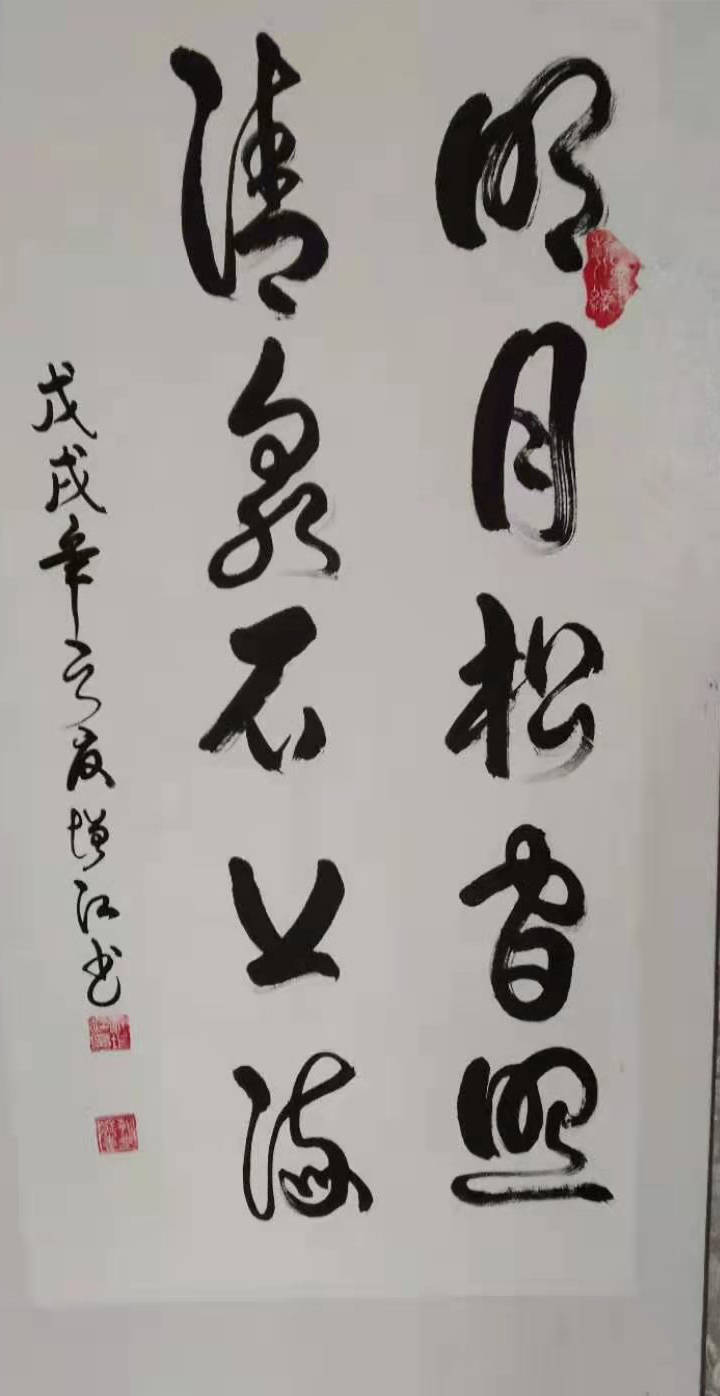 明月松间照
清泉石上流
戊戌年增江书